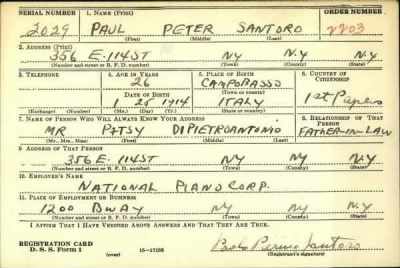 SERIAL NUMBER 1. NAME (Print) ORDER NUMBER
2029 PAUL PETER SANTORO 2203
(First) (Middle) (Last)
2. ADDRESS (Print)
356 E. 114 ST NY N.Y NY
(Number and street or R. F. D. number) (Town) (County) (State)
3. TELEPHONE 4. AGE IN YEARS 5. PLACE OF BIRTH 6. COUNTRY OF CITIZENSHIP
26 CAMPOBASSO
(Town or county)
DATE OF BIRTH 1st Papers
1 25 1914 ITALY
(Exchange) (Number) (Mo.) (Day) (Yr.) (State or country)
7. NAME OF PERSON WHO WILL ALWAYS KNOW YOUR ADDRESS 8. RELATIONSHIP OF THAT PERSON
MR PATSY DIPIETROANTONIO FATHER-IN-LAW
(Mr., Mrs., Miss) (First) (Middle) (Last)
9. ADDRESS OF THAT PERSON
356 E. 114 ST NY NY NY
(Number and street or R. F. D. number) (Town) (County) (State)
10. EMPLOYER'S NAME
NATIONAL PIANO CORP.
11. PLACE OF EMPLOYMENT OR BUSINESS
1200 BWAY NY NY N.Y
(Number and street or R. F. D. number) (Town) (County) (State)
I AFFIRM THAT I HAVE VERIFIED ABOVE ANSWERS AND THAT THEY ARE TRUE.
REGISTRATION CARD
D. S. S. Form 1 (over) 16-17105 Santoro
(Registrant's signature)